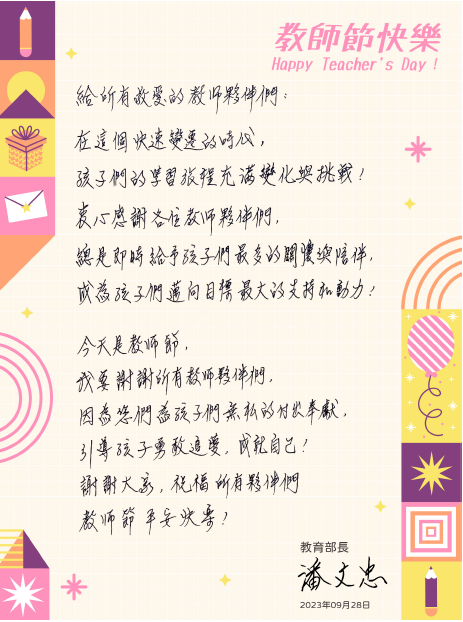 教師節快樂
Happy Teacher's Day !
給所有敬愛的教師夥伴們：
在這個快速變遷的時代，
孩子們的學習旅程充滿變化與挑戰！
衷心感謝各位教師夥伴們，
總是即時給予孩子們最多的關懷與陪伴，
成為孩子們邁向目標最大的支持和動力！
今天是教師節，
我要謝謝所有教師夥伴們，
因為您們為孩子們無私的付出奉獻，
引導孩子勇敢追夢，成就自己！
謝謝大家，祝福所有夥伴們
教師節平安快樂！
教育部長
潘文忠
2023年09月28日